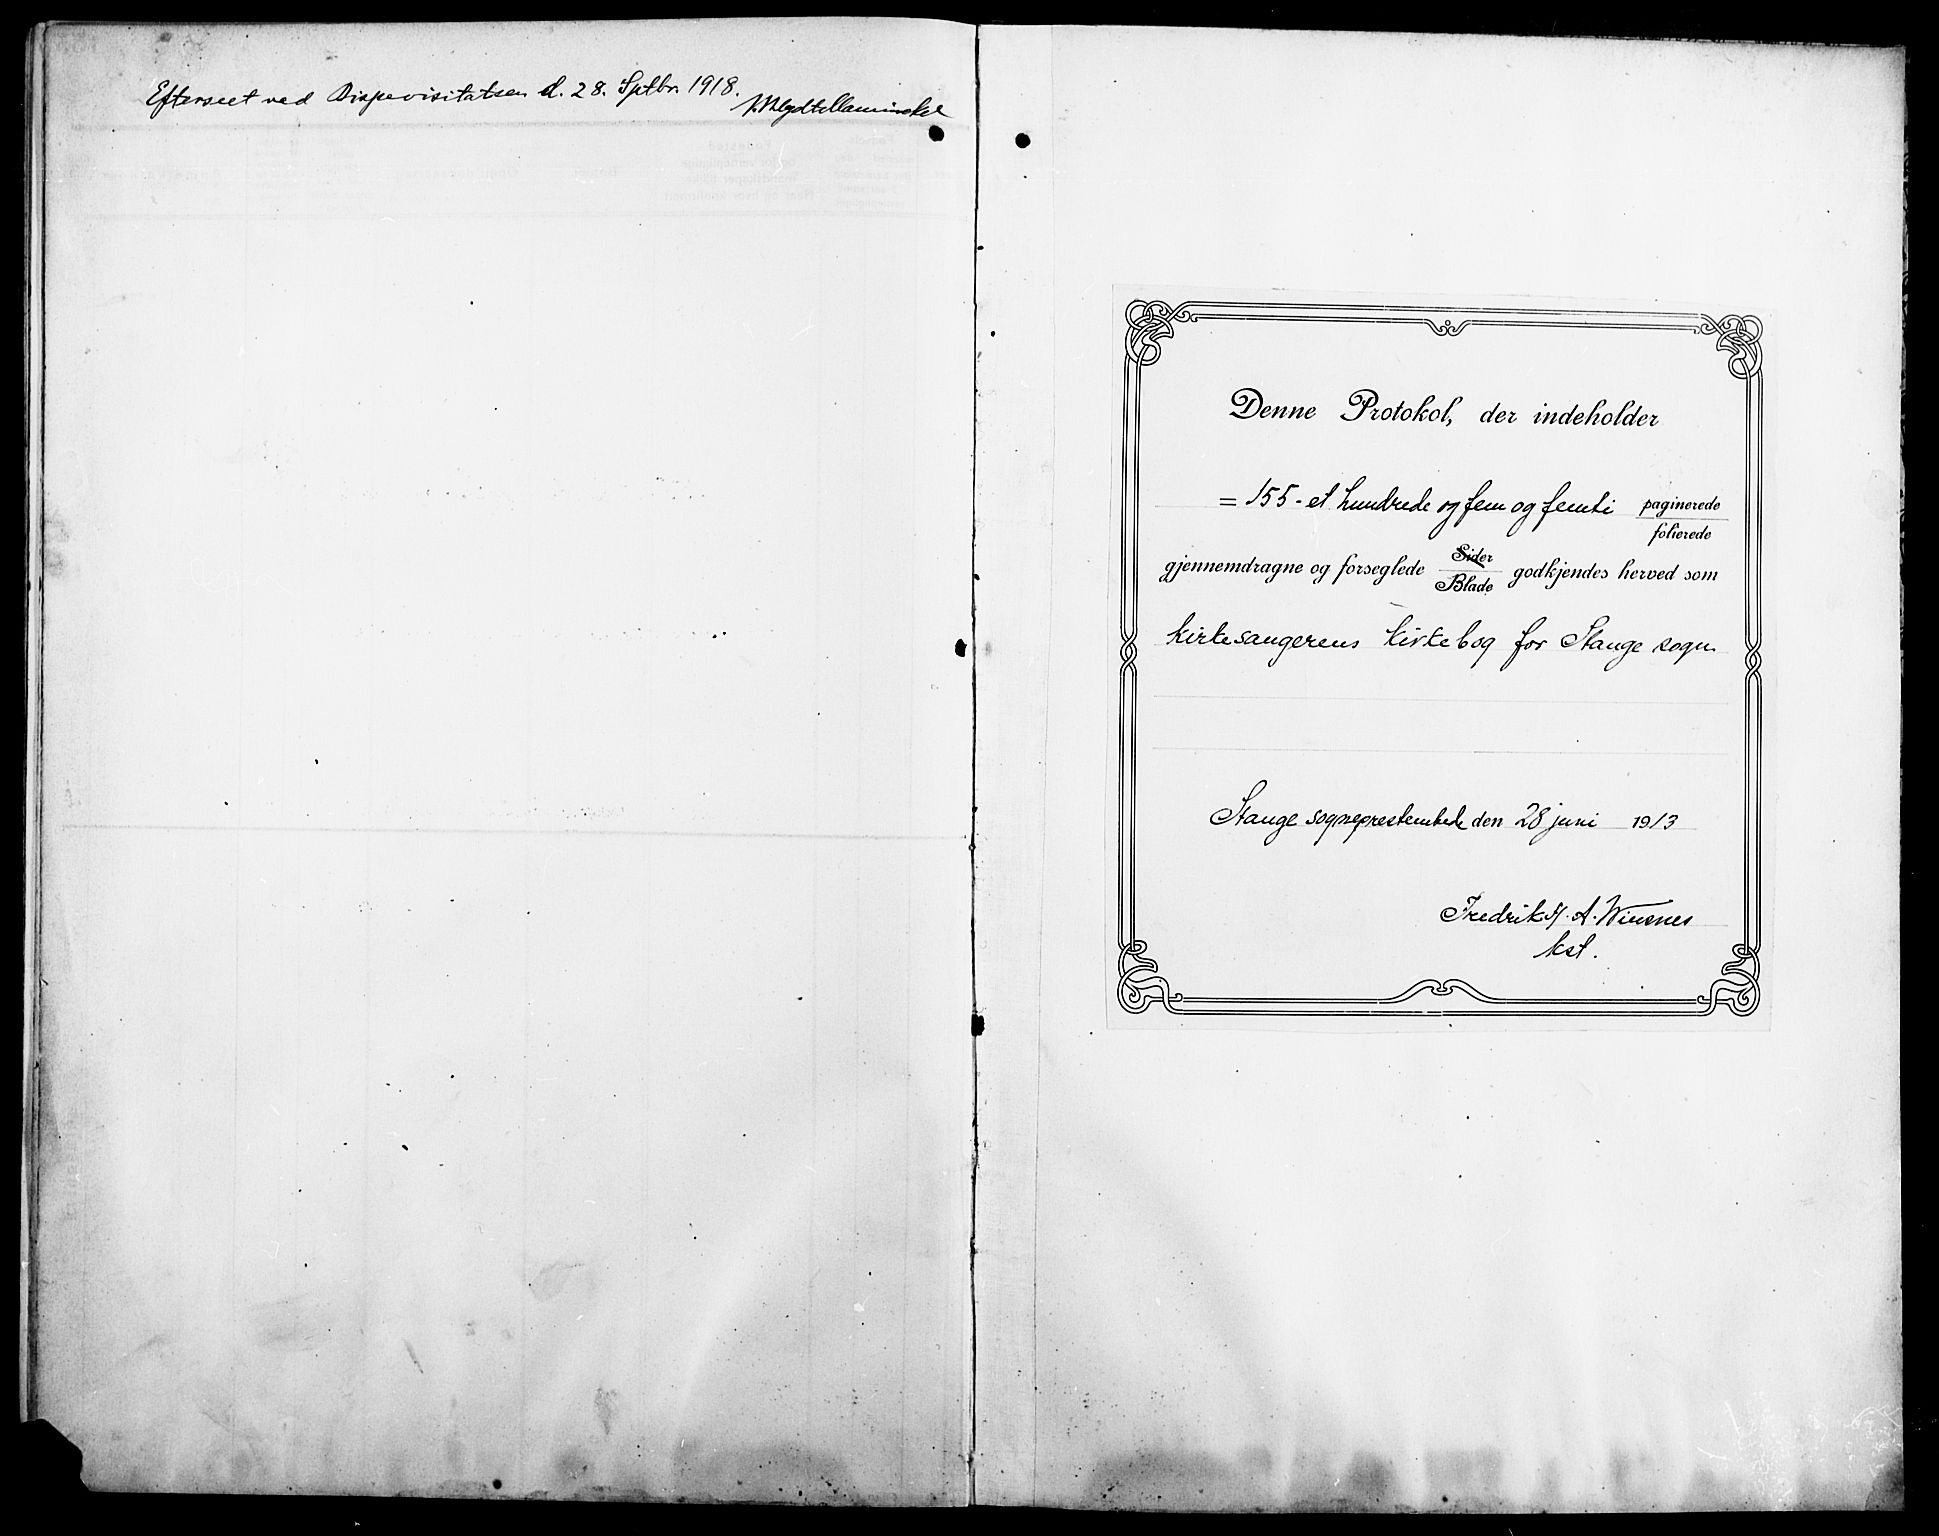 Efterseet ved Bispevisitatsen d. 28. Sptbr. 1918.
Denne Protokol, der indeholder
= 155 - et hundrede og fem og femti paginerede
folierede
gjennemdragne og forseglede Sider Blade godkjendes herved som
kirkesangerens kirkebog for Stange sogn
Stange sogneprestembede den 28 juni 1913
Fredrik H. A. Wiesnes
kst.